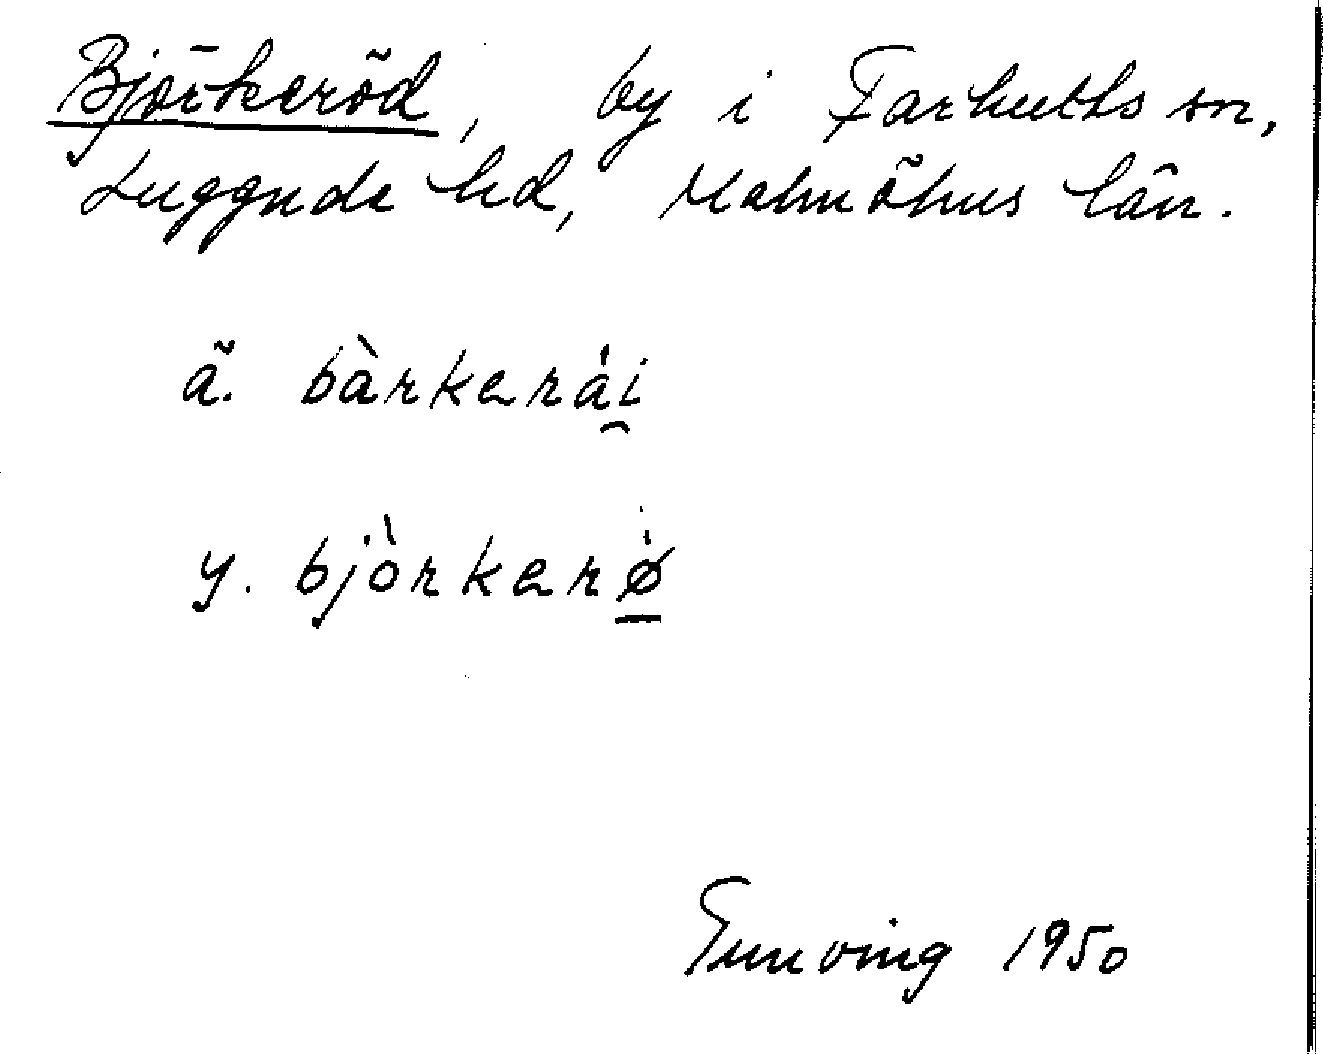 Björkeröd, by i Farhults sn,
Luggude hd, Malmöhus län.
ä. bàrkerái̯
y. bjòrkerǿ̱
Gunving 1950